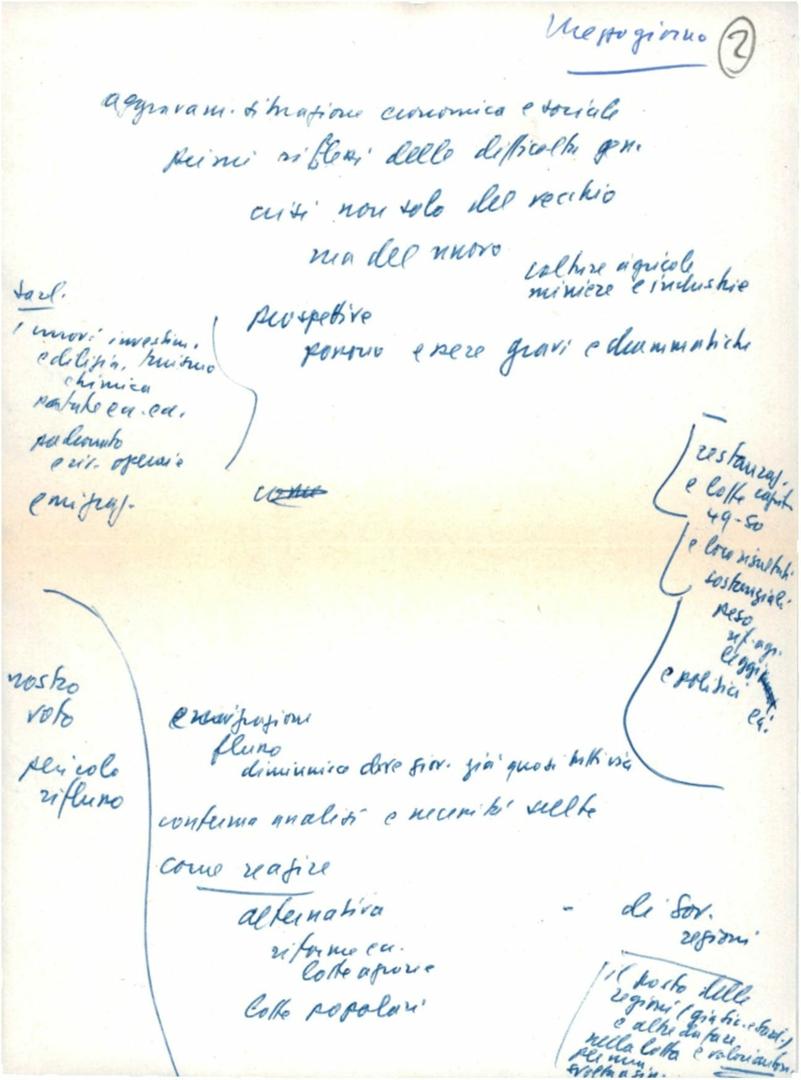 Mezzogiorno 2
aggravam. situazione economica e sociale
primi riflessi delle difficoltà gen.
crisi non solo del vecchio
ma del nuovo
colture agricole
miniere e industrie
Sard.
i nuovi investim.
edilizia, turismo
chimica
ecc. ecc.
padronato
e riv. operaie
emigraz.
prospettive
possono essere gravi e drammatiche
restauraz.
e lotte
49-50
e loro risultati
sostanziali
peso
rif. agr.
leggi
e politici
ecc.
nostro
voto
pericolo
riflusso
emigrazione
flusso
diminuisce dove giov. già quasi tutti via
conferma analisi e necessità scelte
come reagire
alternativa
riforme ecc.
lotte agrarie
lotte popolari
- di Gov.
regioni
il posto delle
regioni (già Sic. e Sard.)
e altre da fare
nella lotta e
per una
svolta a sin.